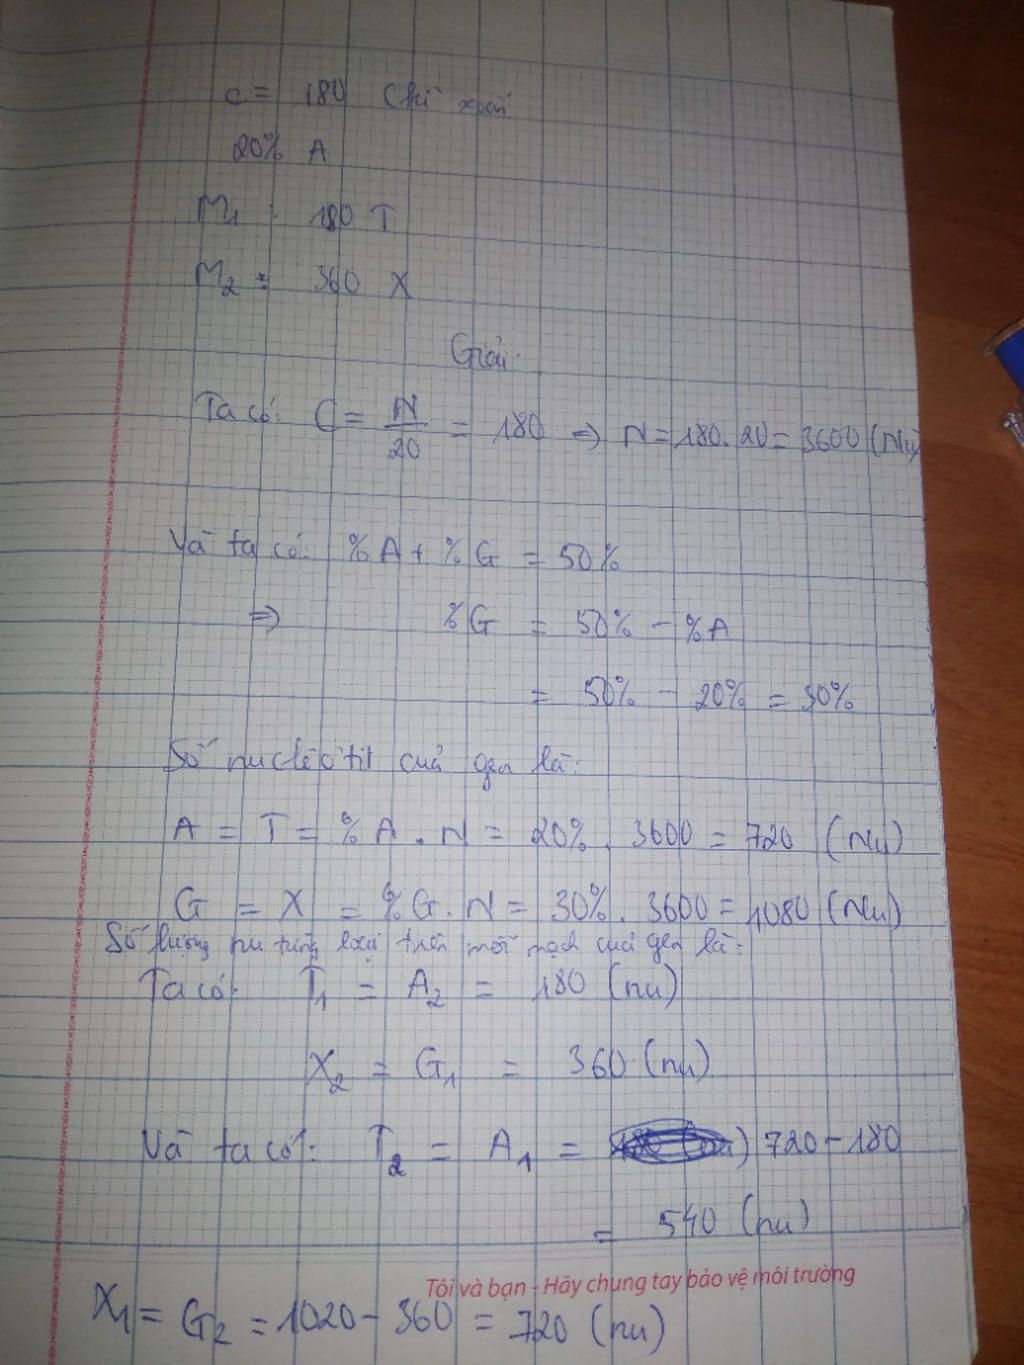 C = 180 Chu kì xoắn
20% A
M₁ : 180 T
M₂ : 360 X
Giải:
Ta có: C = N/20 = 180 => N = 180.20 = 3600 (Nu)
Và ta có: %A + %G = 50%
=> %G = 50% - %A
= 50% - 20% = 30%
Số nuclêôtit của gen là:
A = T = %A . N = 20% . 3600 = 720 (Nu)
G = X = %G . N = 30% . 3600 = 1080 (Nu)
Số lượng nu từng loại trên mỗi mạch của gen là:
Ta có: T₁ = A₂ = 180 (nu)
X₂ = G₁ = 360 (nu)
Và ta có: T₂ = A₁ = 720 - 180
= 540 (nu)
Tôi và bạn - Hãy chung tay bảo vệ môi trường
X₁ = G₂ = 1020 - 360 = 720 (nu)